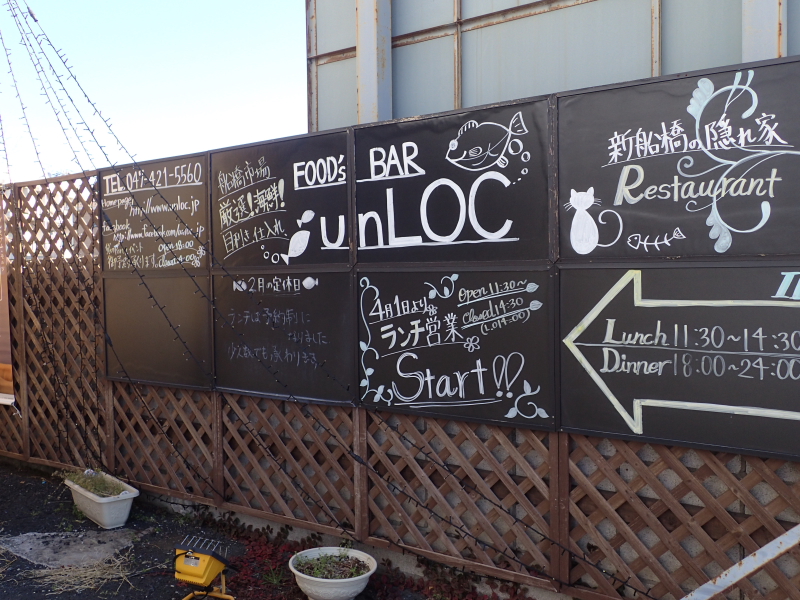 TEL 047-421-5560
Homepage
http://www.unloc.jp
Facebook
http://www.facebook.com/unloc.jp
船橋市場
厳選!海鮮!
目利き仕入れ
FOOD's BAR
unLOC
新船橋の隠れ家
Restaurant
2月の定休日
ランチは予約制に
なりました
4月1日より
ランチ営業
Start!!
Open 11:30~
Closed 14:30
(L.O 14:00)
Lunch 11:30~14:30
Dinner 18:00~24:00